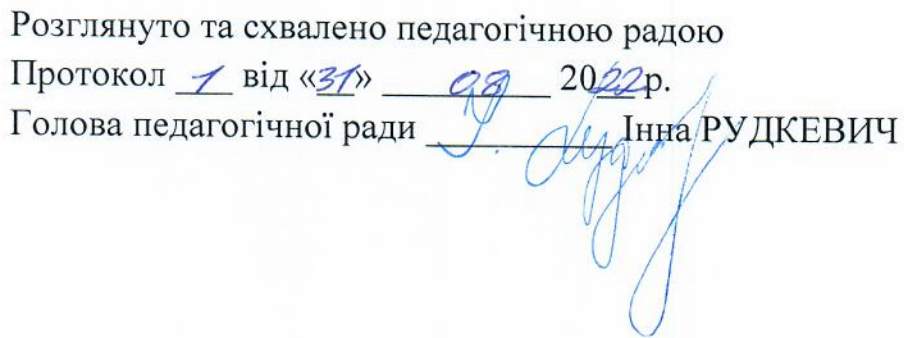 Розглянуто та схвалено педагогічною радою
Протокол 1 від «31» 08 2022р.
Голова педагогічної ради Інна РУДКЕВИЧ